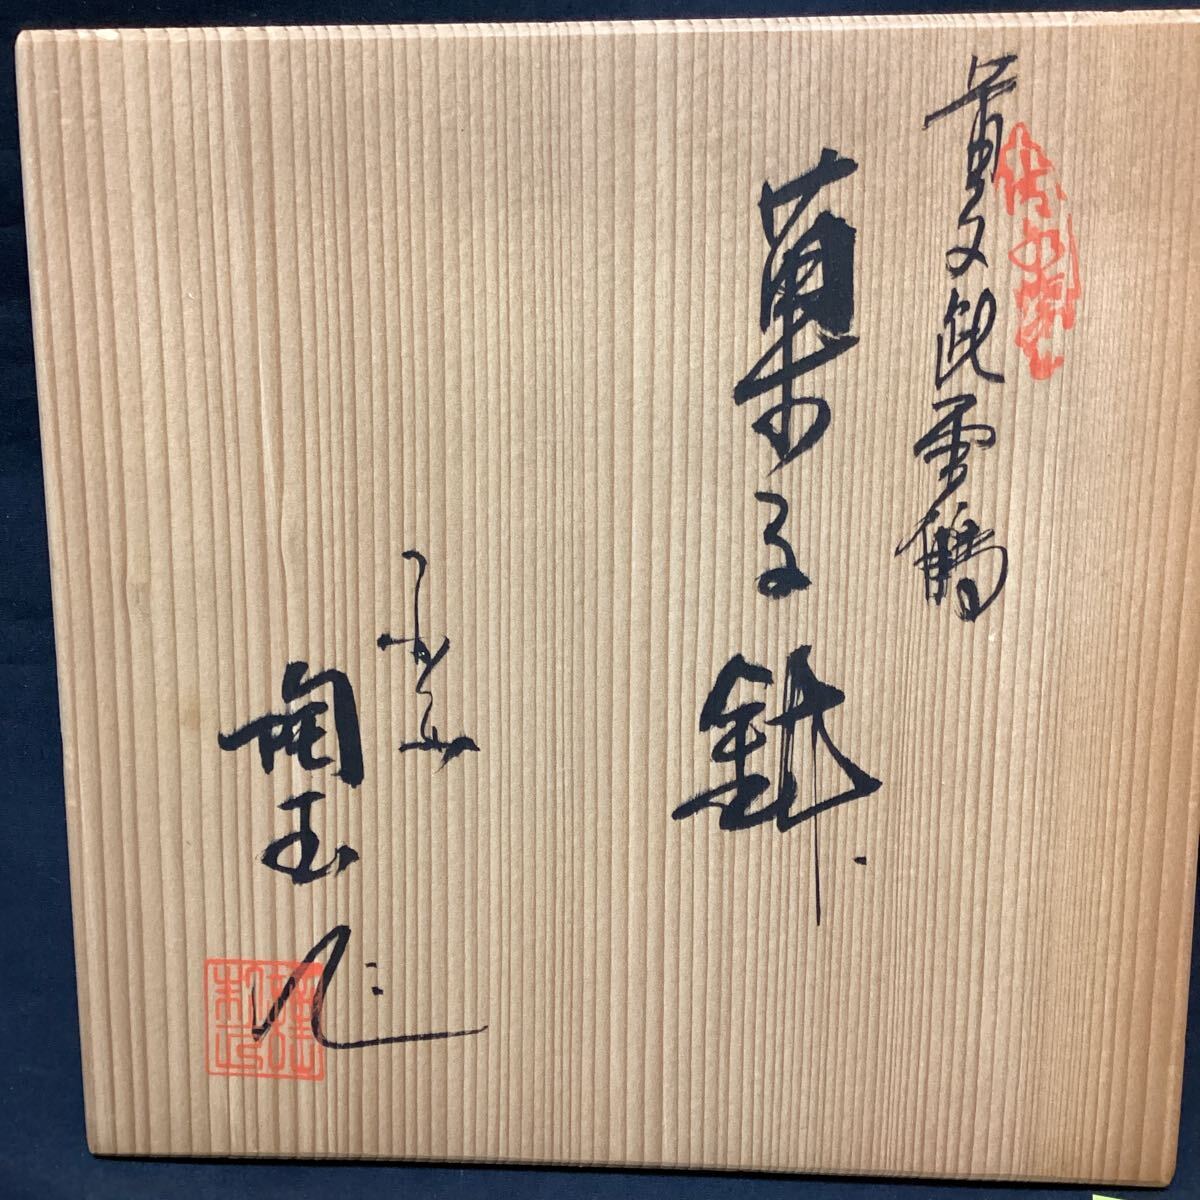 黄交趾雲鶴
菓子鉢
平安
陶玉作